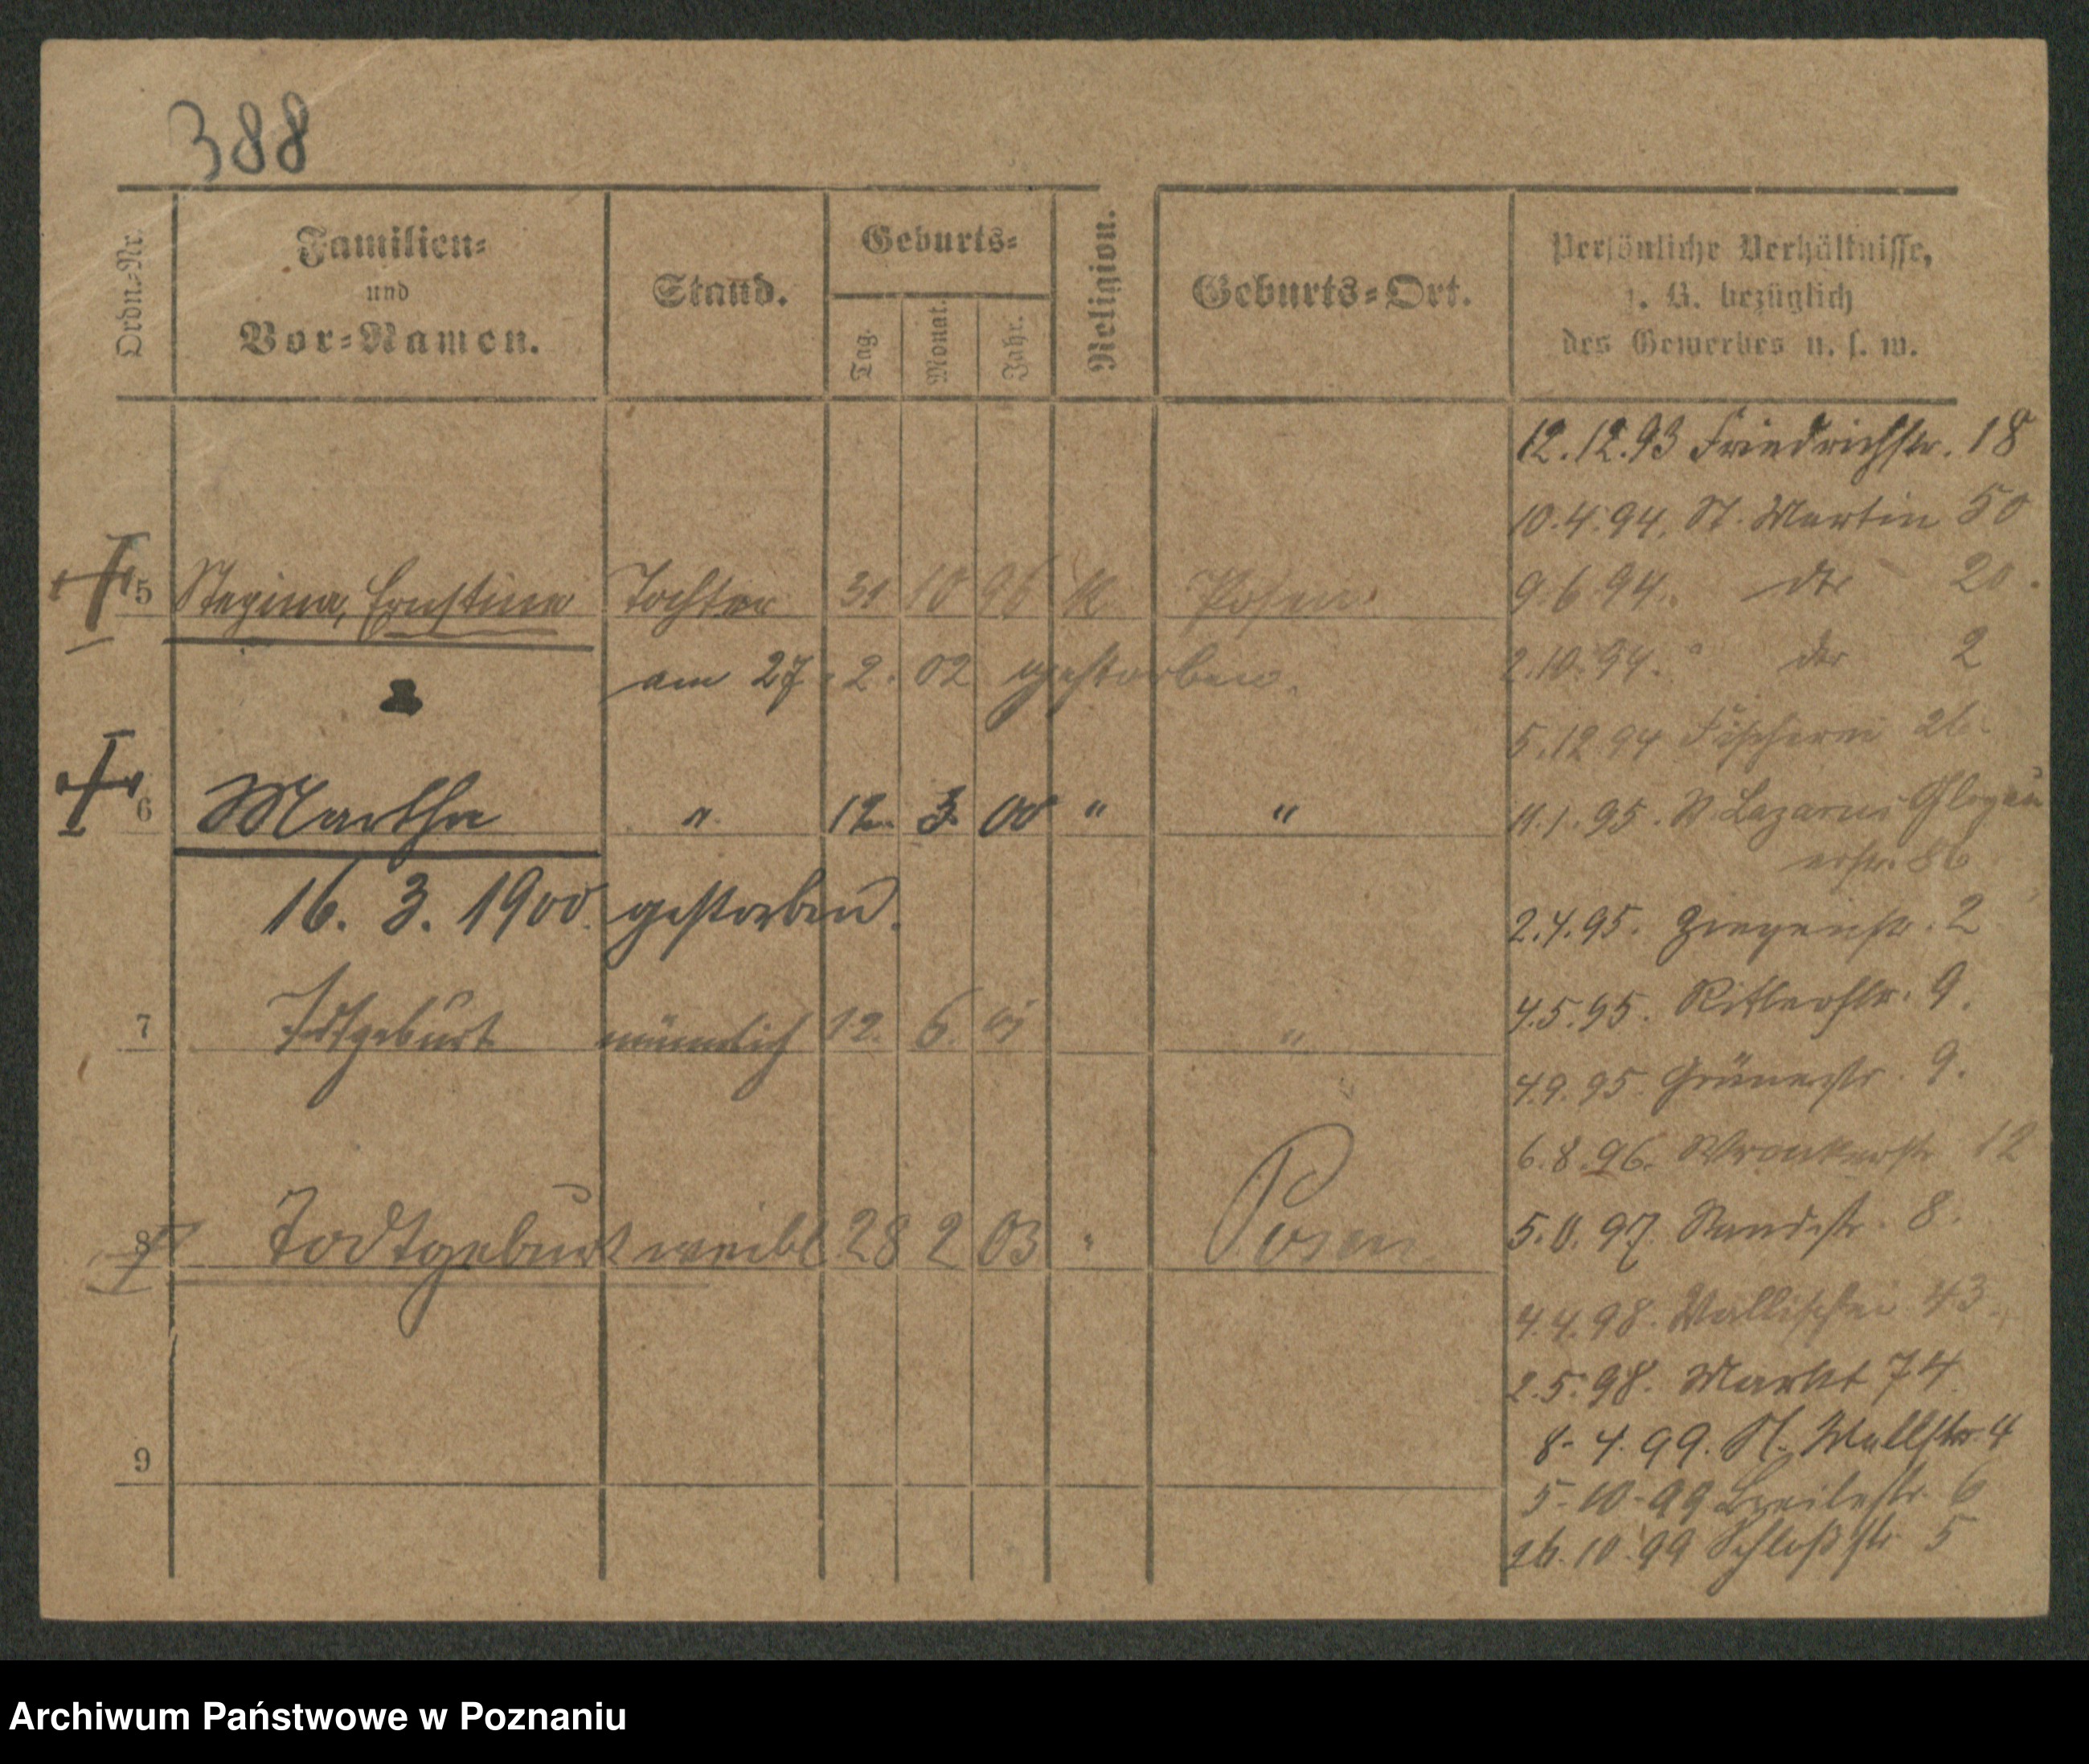 388
Ordn.-Nr.
Familien-
und
Vor-Namen.
Stand.
Geburts-
Tag.
Monat.
Jahr.
Religion.
Geburts-Ort.
Persönliche Verhältnisse,
z. B. bezüglich
des Gewerbes u. s. w.
12.12.93 Friedrichstr. 18
10.4.94. St. Martin 50
5 Ernstine Tochter 31 10 96 K. Posen.
9.6.94. dto 20.
am 27. 2. 02 gestorben.
2.10.94. dto 2
5.12.94 Fischerei 26.
6 Martha " 12. 3. 00 " "
11.1.95. St. Lazarus Glogau
erstr. 86
16. 3. 1900. gestorben.
2.4.95. Ziegenstr. 2
7 Todtgeburt männlich 12. 6. "
4.5.95. Ritterstr. 9.
4.9.95. Grünestr. 9.
6.8.96. Wronkerstr 12
8 Todtgeburt weibl 28 2 03 " Posen
97. Sandstr. 8.
4.4.98. Wallischei 43.
2.5.98. Markt 74.
9
8.4.99. Wallstr. 4
5.10.99 Breitestr. 6
26.10.99 Schloßstr 5
Archiwum Państwowe w Poznaniu